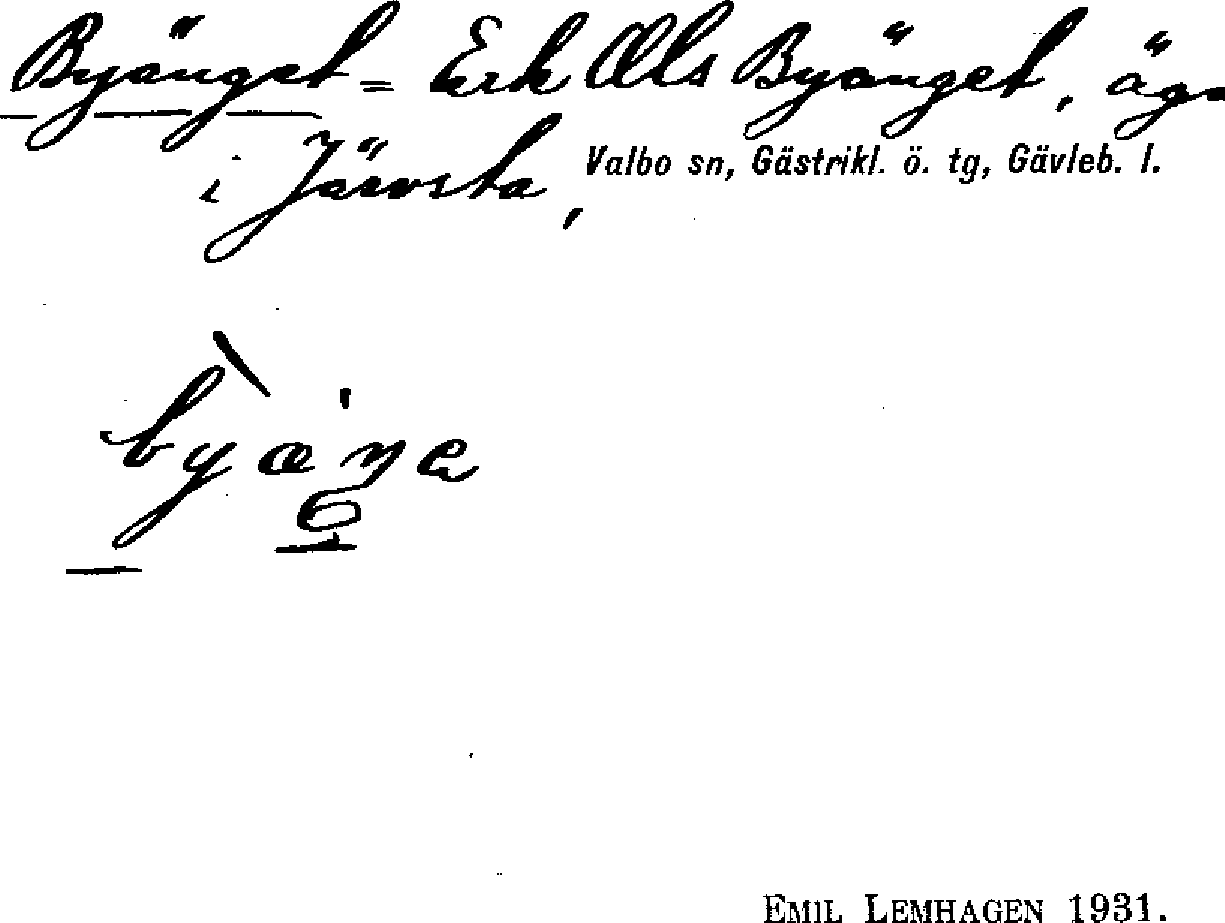 Byänget = Erk Ols Byänget, äga
i Järvsta, Valbo sn, Gästrikl. ö. tg, Gävleb. l.
byæŋe
EMIL LEMHAGEN 1931.